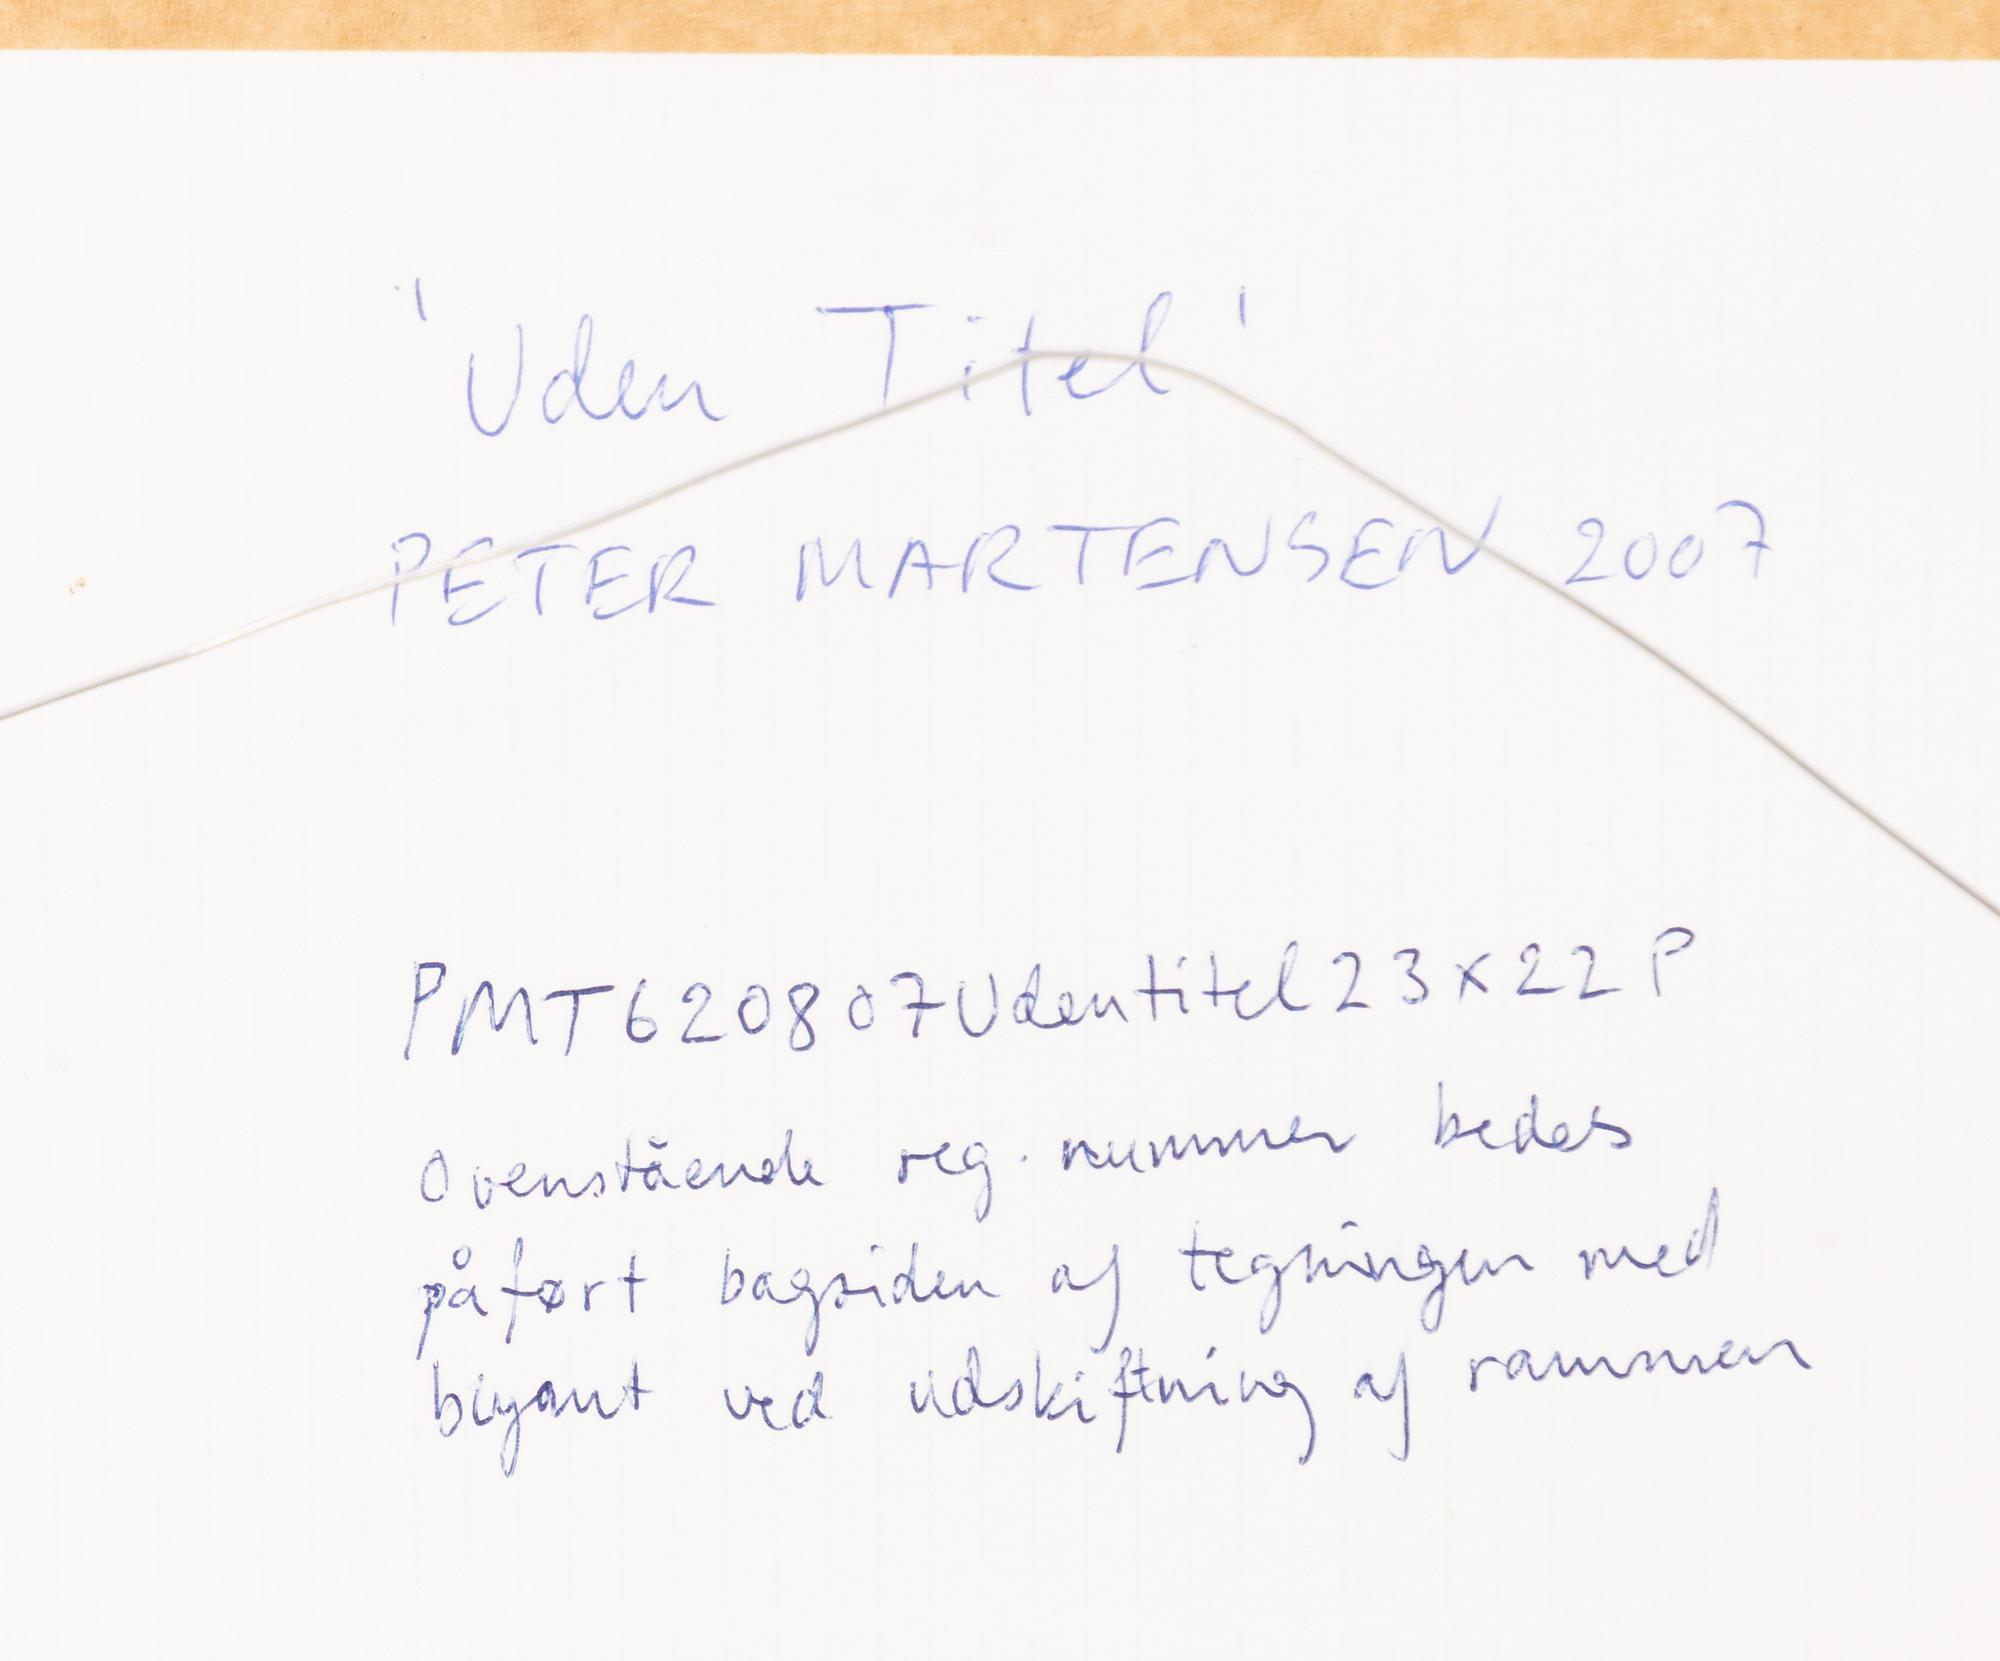 'Uden Titel'
PETER MARTENSEN 2007
PMT620807Udentitel23x22P
Ovenstående reg. nummer bedes
påført bagsiden af tegningen med
blyant ved udskiftning af rammen